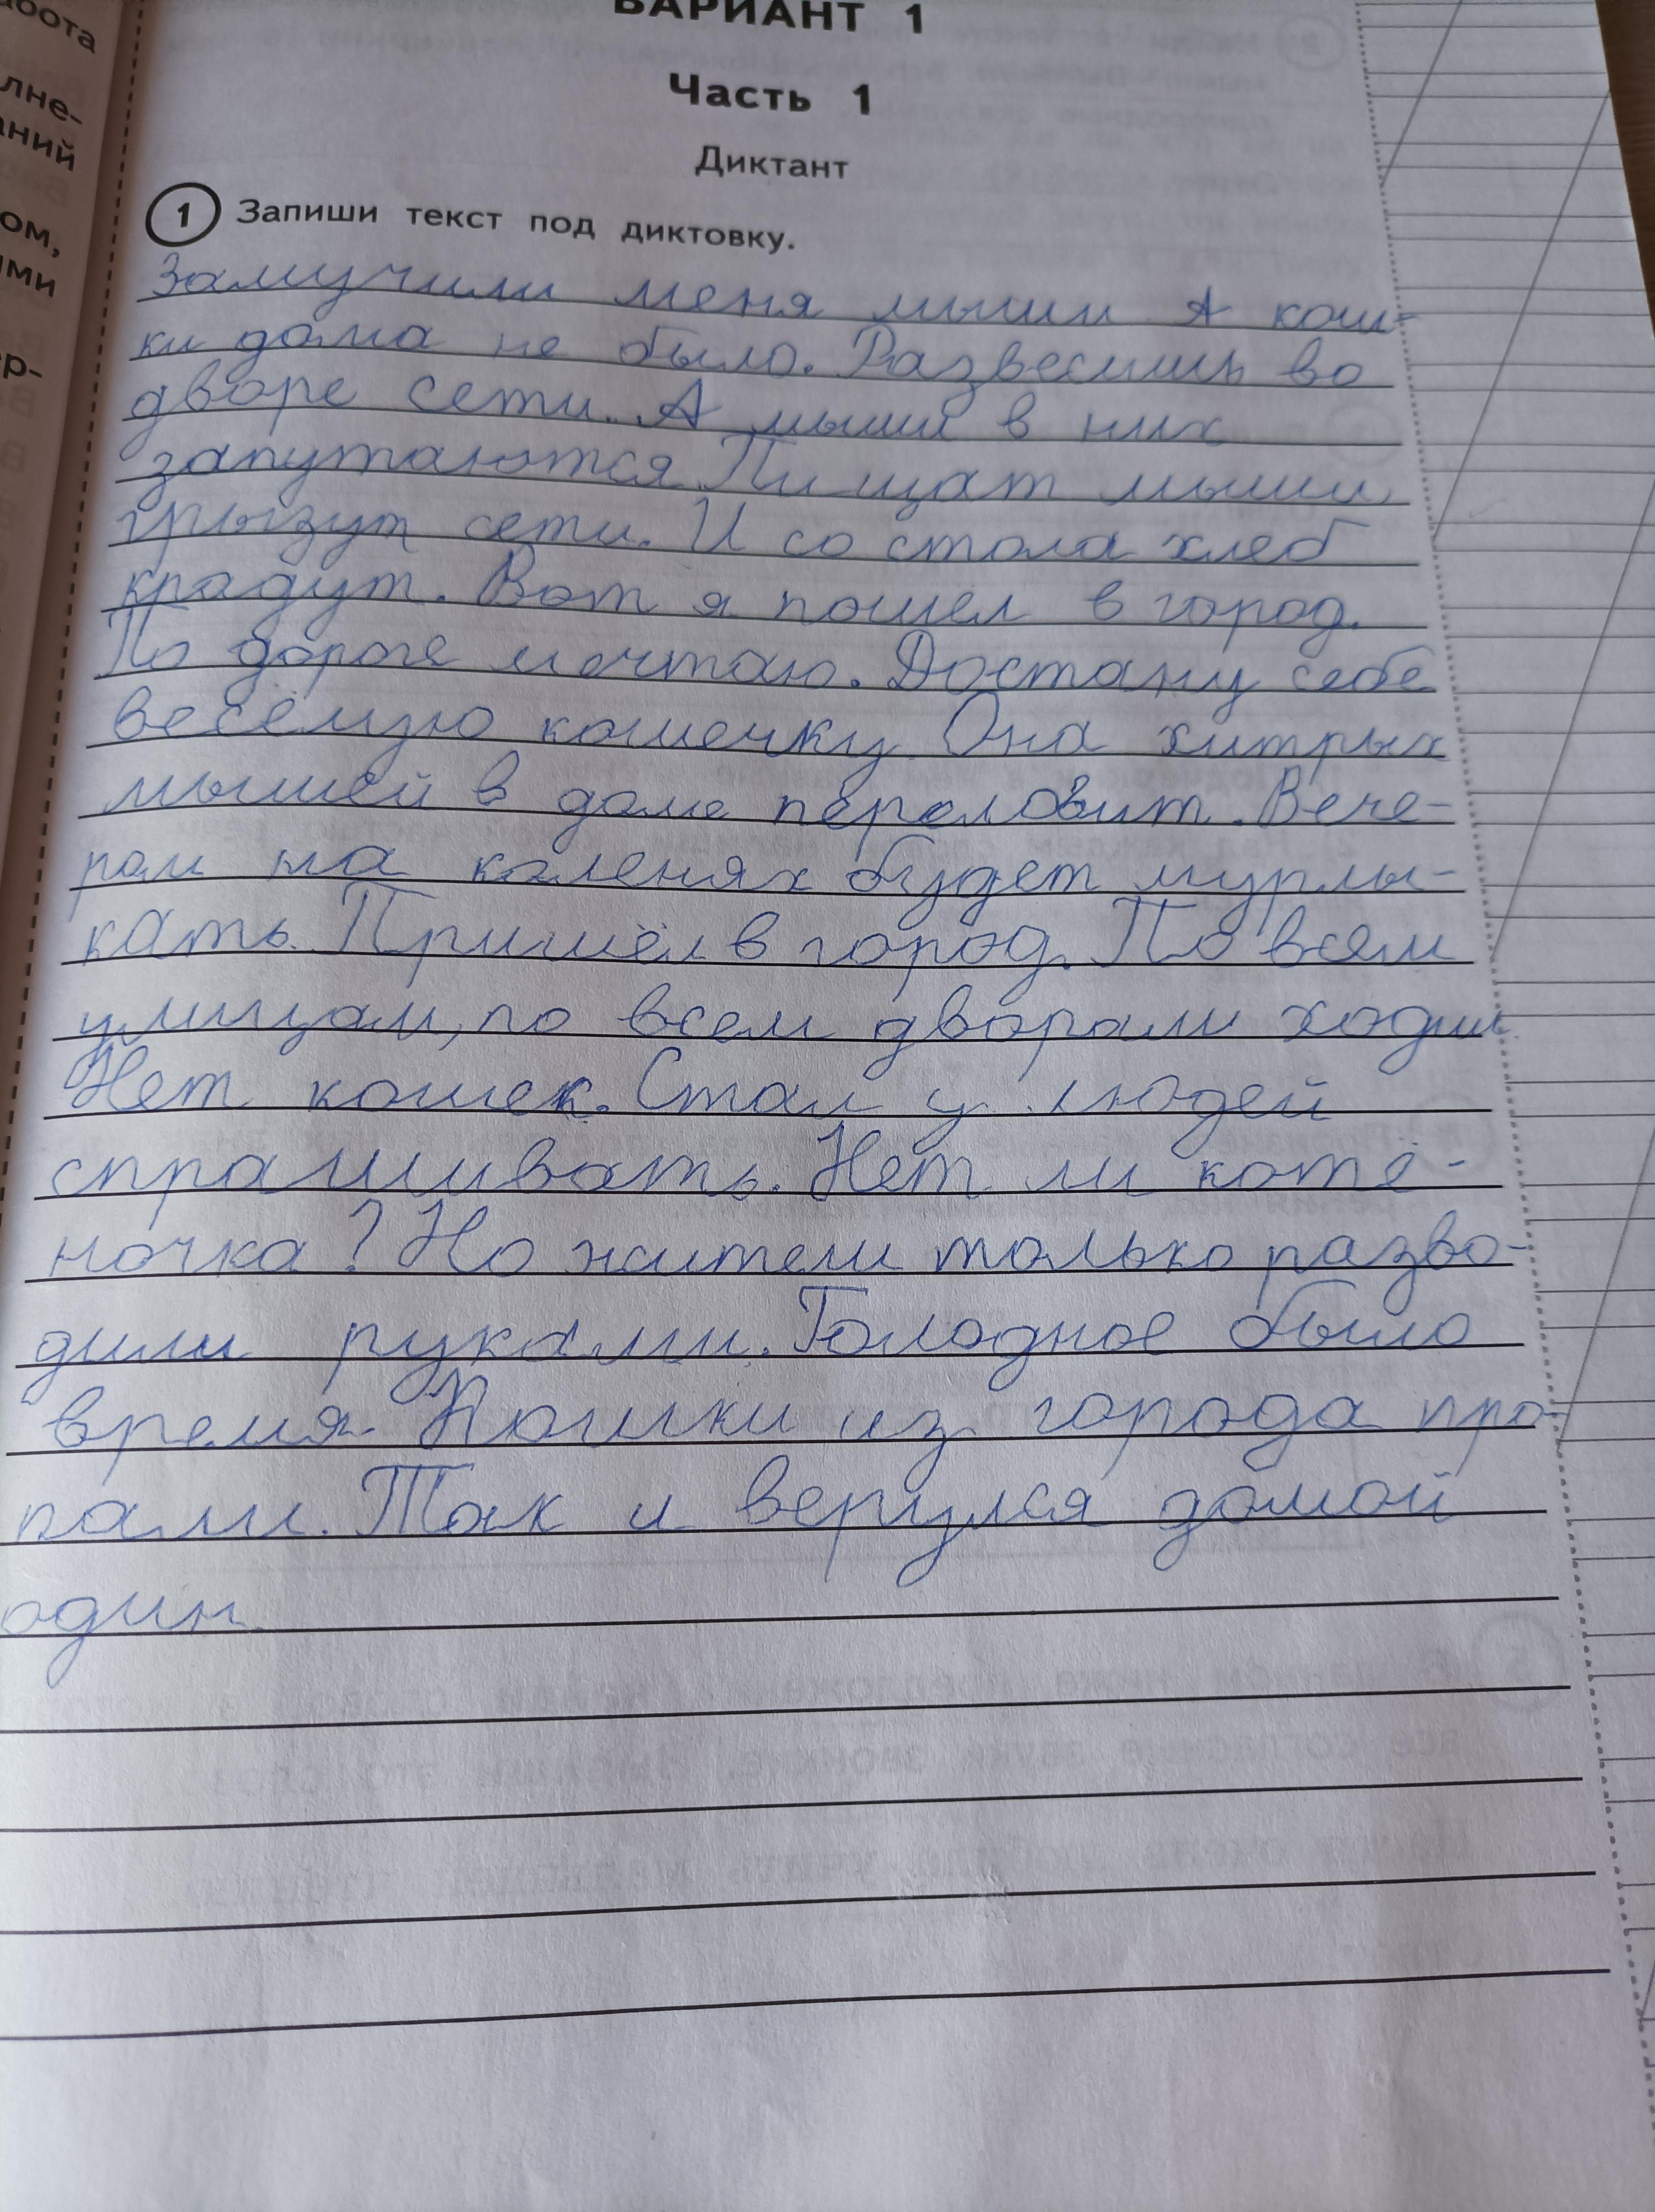 бота
лне-
аний
ом,
ими
ер-
ВАРИАНТ 1
Часть 1
Диктант
1 Запиши текст под диктовку.
Замучили меня мыши А кош-
ки дома не было. Развесишь во
дворе сети. А мыши в них
запутаются Пищат мыши,
грызут сети. И со стола хлеб
крадут. Вот я пошёл в город.
По дороге мечтаю. Достану себе
весёлую кошечку. Она хитрых
мышей в доме переловит. Вече-
ром на коленях будет мурлы-
кать. Пришёл в город. По всем
улицам, по всем дворам ходил
Нет кошек. Стал у людей
спрашивать. Нет ли котё-
ночка? Но жители только разво-
дили руками. Голодное было
время. Кошки из города про-
пали. Так и вернулся домой
один.